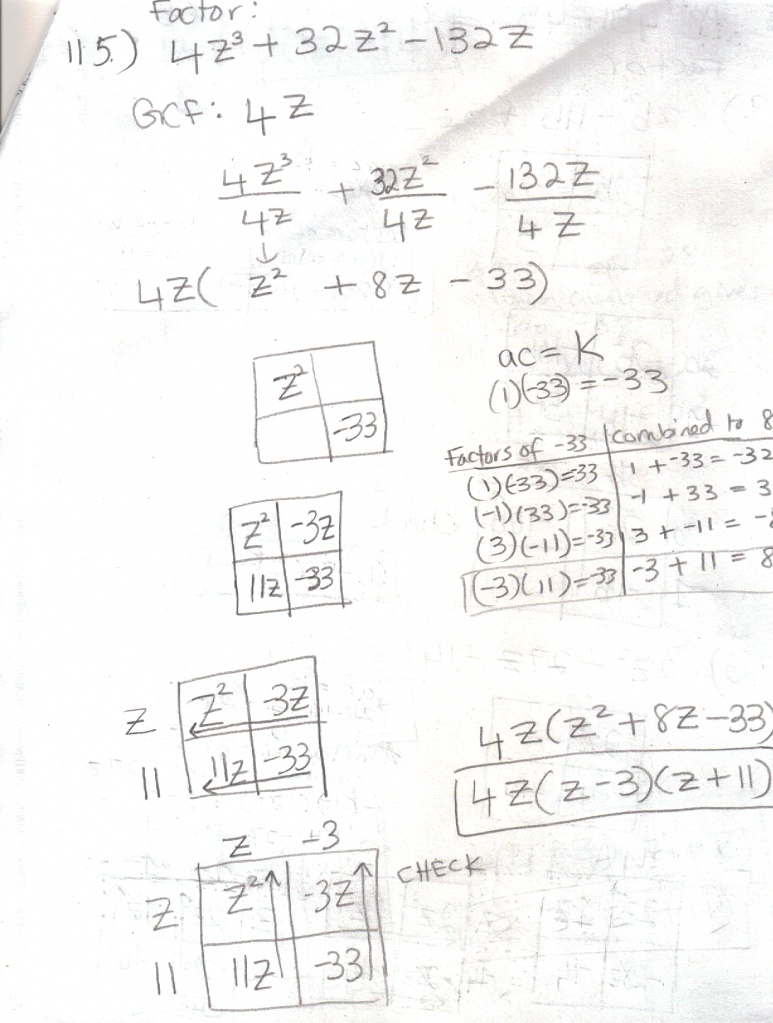 Factor:
115.) 4z³ + 32z² - 132z
GCF: 4z
4z³/4z + 32z²/4z - 132z/4z
↓
4z( z² + 8z - 33)
ac = K
(1)(-33) = -33
z²
-33
Factors of -33 | combined to 8
(1)(-33)=-33 | 1 + -33 = -32
(-1)(33)=-33 | -1 + 33 = 3
(3)(-11)=-33 | 3 + -11 = -8
(-3)(11)=-33 | -3 + 11 = 8
z² | -3z
11z | -33
z | z² | -3z
11 | 11z | -33
4z(z² + 8z - 33)
4z(z-3)(z+11)
z -3
CHECK
z | z² | -3z
11 | 11z | -33